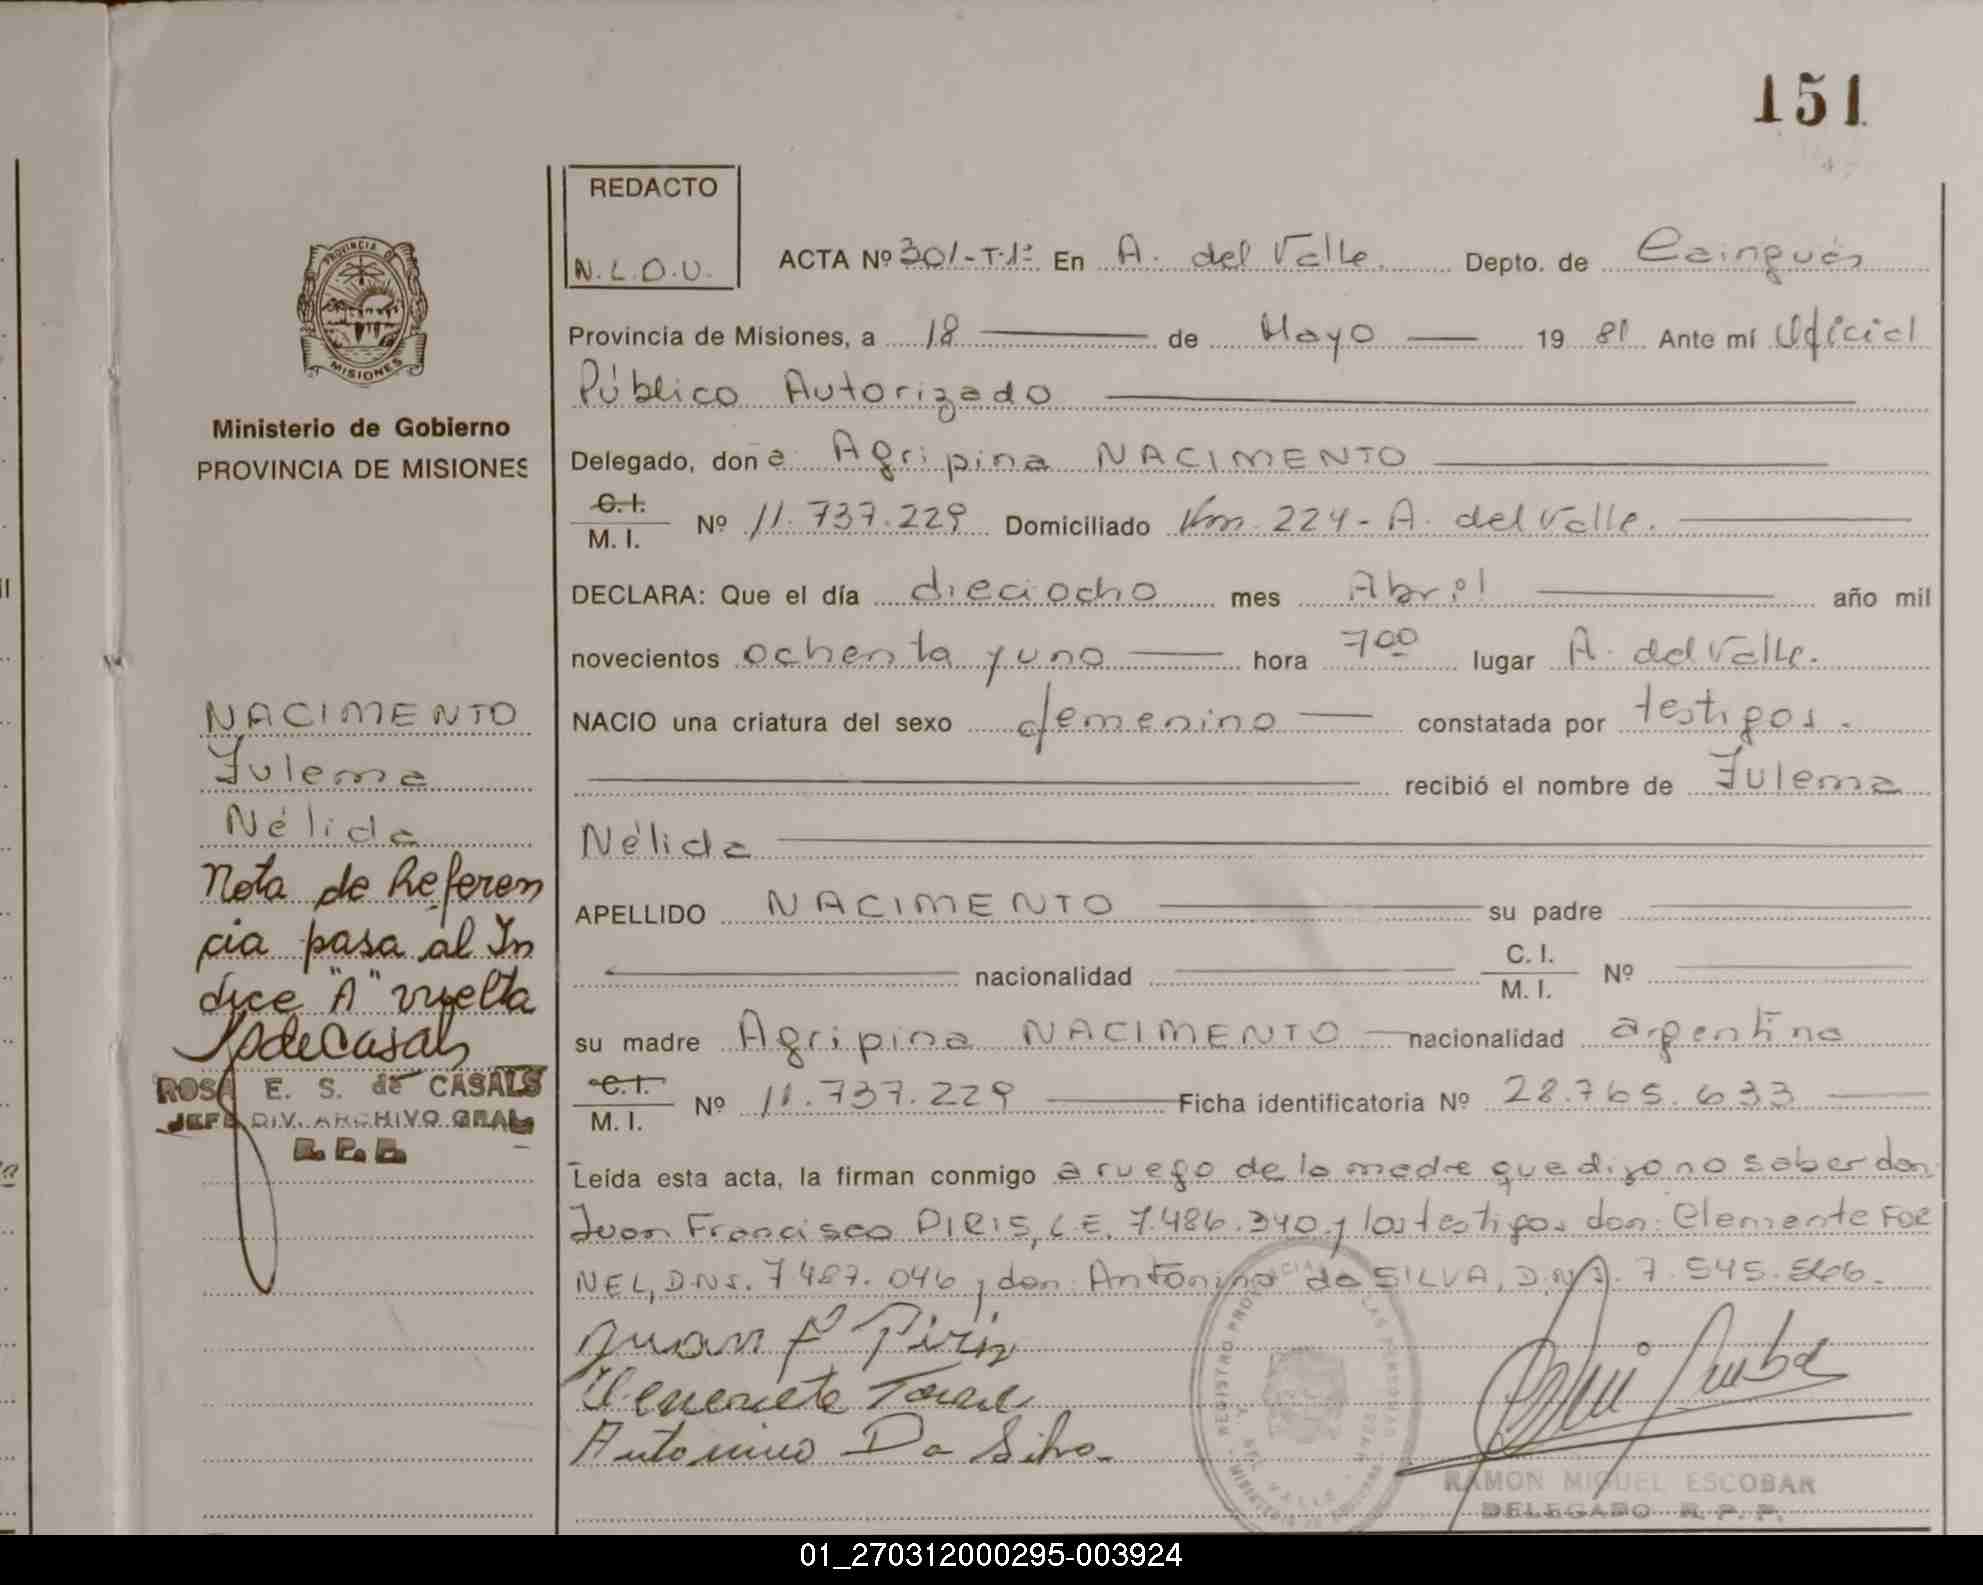 151
REDACTO
N.L.O.U.
ACTA Nº 301-T-1º En A. del Valle Depto. de Cainguás
Provincia de Misiones, a 18 de Mayo 19 81 Ante mí Oficial
Público Autorizado
Delegado, don a Agripina NACIMENTO
C.I.
M. I. Nº 11.737.229 Domiciliado Km. 224 - A. del Valle.
DECLARA: Que el día dieciocho mes Abril año mil
novecientos ochenta y uno hora 7 00 lugar A. del Valle.
NACIO una criatura del sexo femenino constatada por testigos.
recibió el nombre de Zulema
Nélida
APELLIDO NACIMENTO su padre
nacionalidad C. I.
M. I. Nº
su madre Agripina NACIMENTO nacionalidad argentina
C.I.
M. I. Nº 11.737.229 Ficha identificatoria Nº 28.765.633
Leída esta acta, la firman conmigo a ruego de la madre que dijo no saber don
Juan Francisco PIRIS, L.E. 7.486.340 y los testigos don: Clemente FOR
NEL, D.N.I. 7.487.046 y don: Antonino da SILVA, D.N.I. 7.545.566.
Juan F Piris
Antonino Da Silva.
REGISTRO PROVINCIAL DE LAS PERSONAS
A. DEL VALLE
RAMON MIGUEL ESCOBAR
DELEGADO R. P. P.
PROVINCIA DE
MISIONES
Ministerio de Gobierno
PROVINCIA DE MISIONES
NACIMENTO
Zulema
Nélida
Nota de Referen
cia pasa al In
dice "A" vuelta
SdeCasals
ROSA E. S. de CASALS
JEFE DIV. ARCHIVO GRAL
R. P. P.
01_270312000295-003924